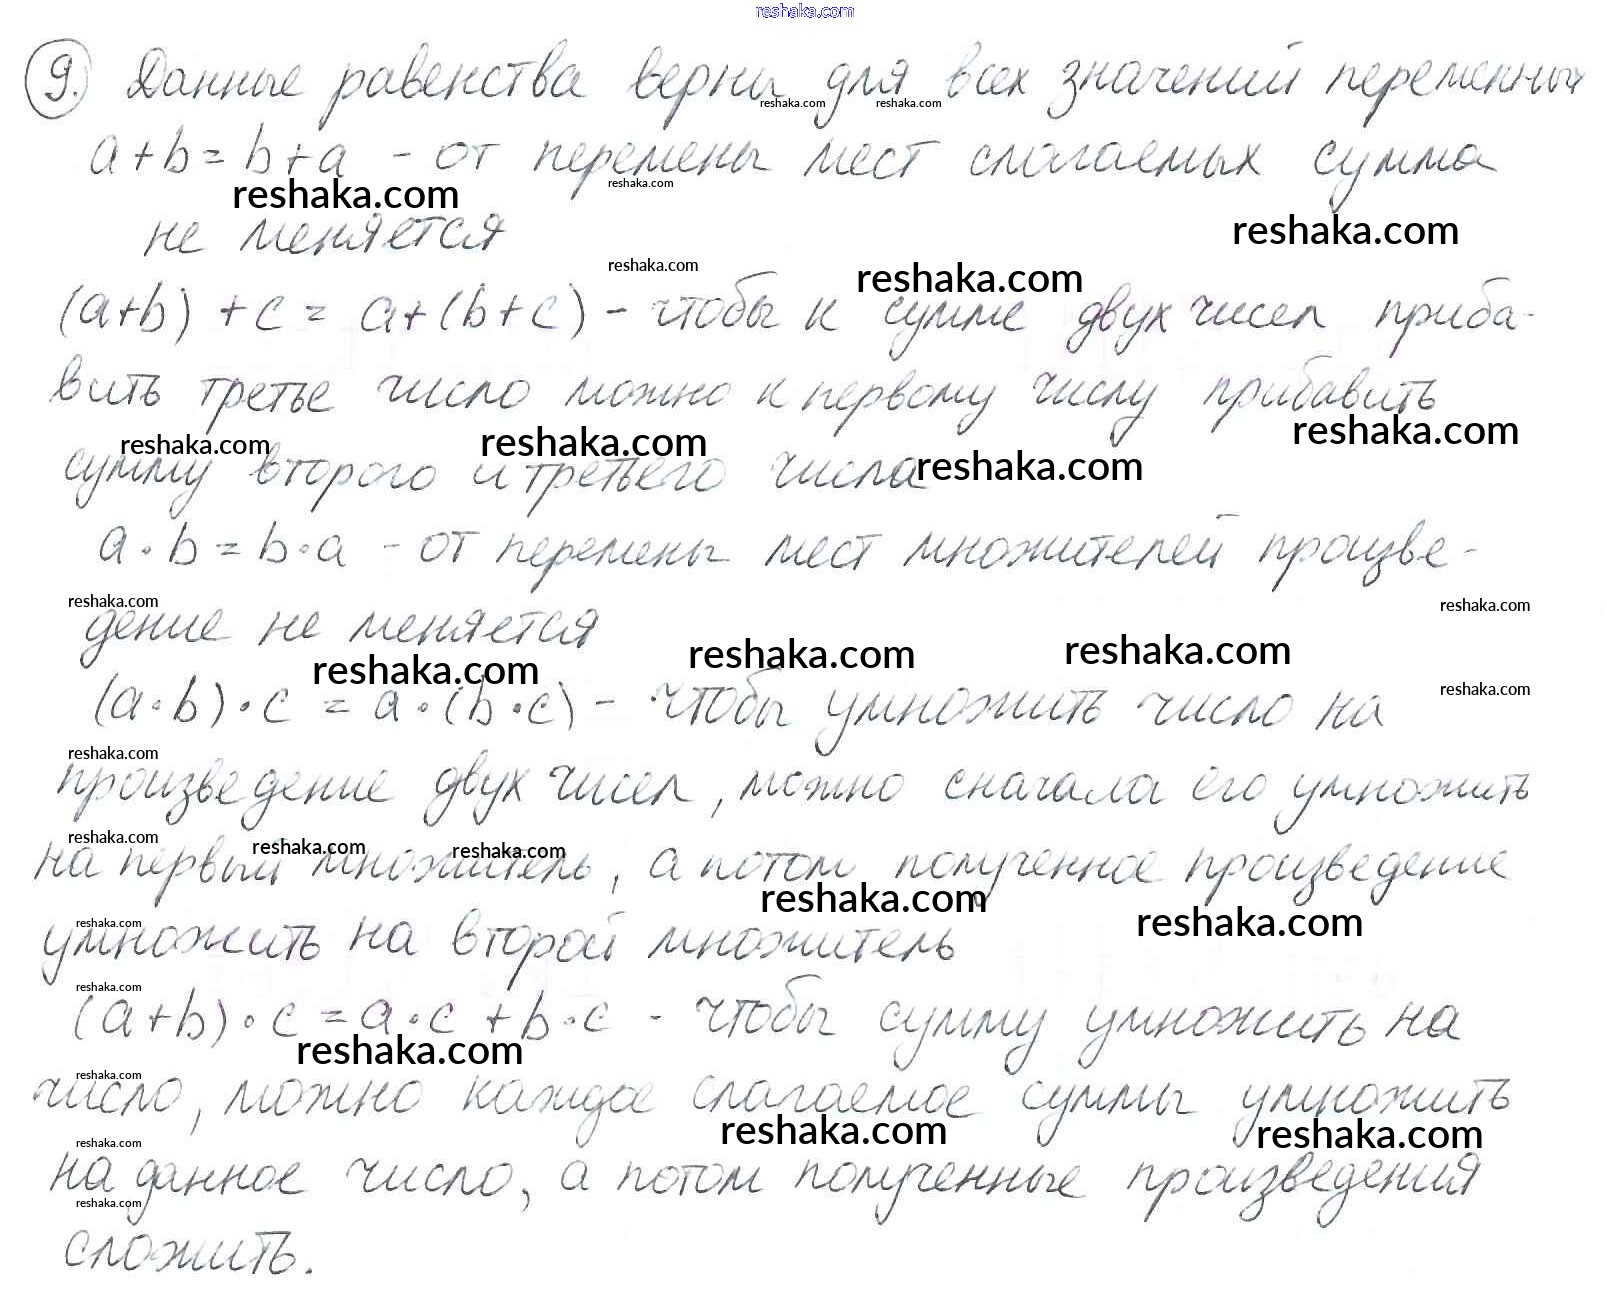 reshaka.com
9. Данные равенства верны для всех значений переменных
reshaka.com reshaka.com
a+b=b+a - от перемены мест слагаемых сумма
reshaka.com reshaka.com
не меняется
reshaka.com
reshaka.com reshaka.com
(a+b)+c=a+(b+c) - чтобы к сумме двух чисел приба-
вить третье число можно к первому числу прибавить
reshaka.com reshaka.com reshaka.com
сумму второго и третьего числа
reshaka.com
a·b=b·a - от перемены мест множителей произве-
reshaka.com reshaka.com
дение не меняется
reshaka.com reshaka.com reshaka.com
reshaka.com
(a·b)·c=a·(b·c) - чтобы умножить число на
reshaka.com
произведение двух чисел, можно сначала его умножить
reshaka.com reshaka.com reshaka.com
на первый множитель, а потом полученное произведение
reshaka.com reshaka.com
reshaka.com
умножить на второй множитель
reshaka.com
(a+b)·c=a·c+b·c - чтобы сумму умножить на
reshaka.com
reshaka.com
число, можно каждое слагаемое суммы умножить
reshaka.com reshaka.com
reshaka.com
на данное число, а потом полученные произведения
reshaka.com
сложить.